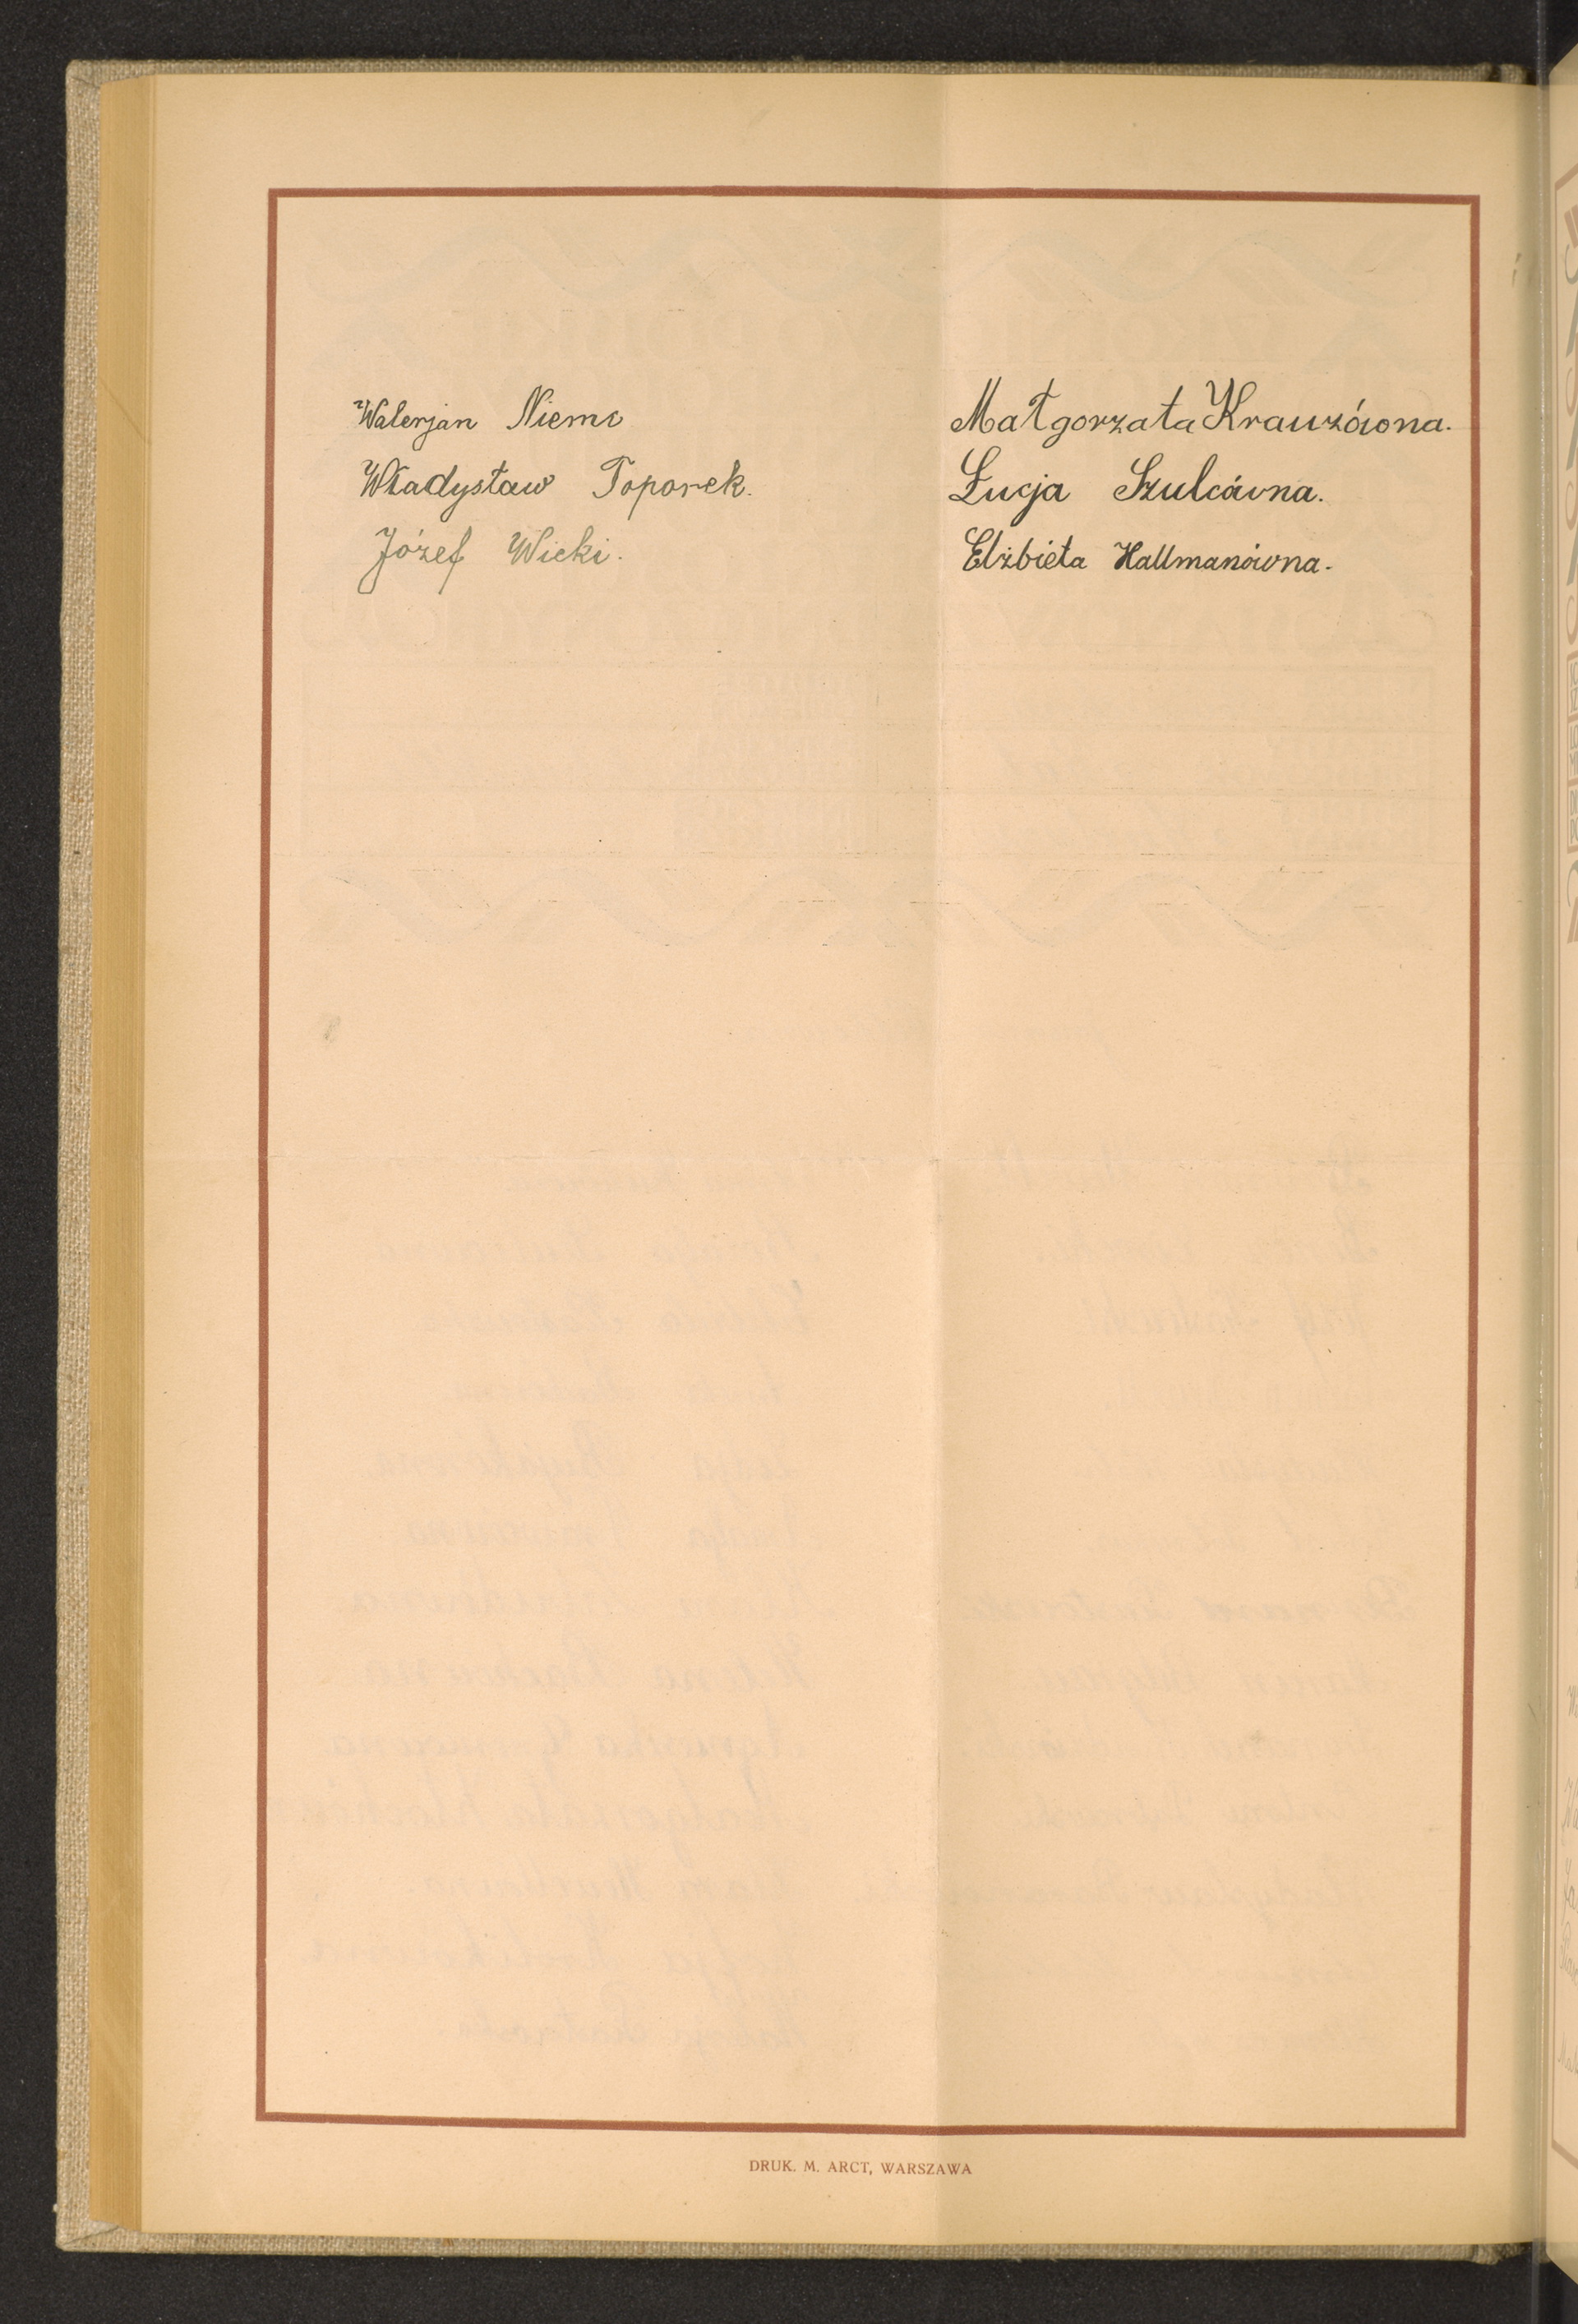 Walerjan Niemc
Władysław Toporek.
Józef Wicki.
Małgorzata Krauzówna.
Łucja Szulcówna.
Elżbieta Hallmanówna.
DRUK. M. ARCT, WARSZAWA